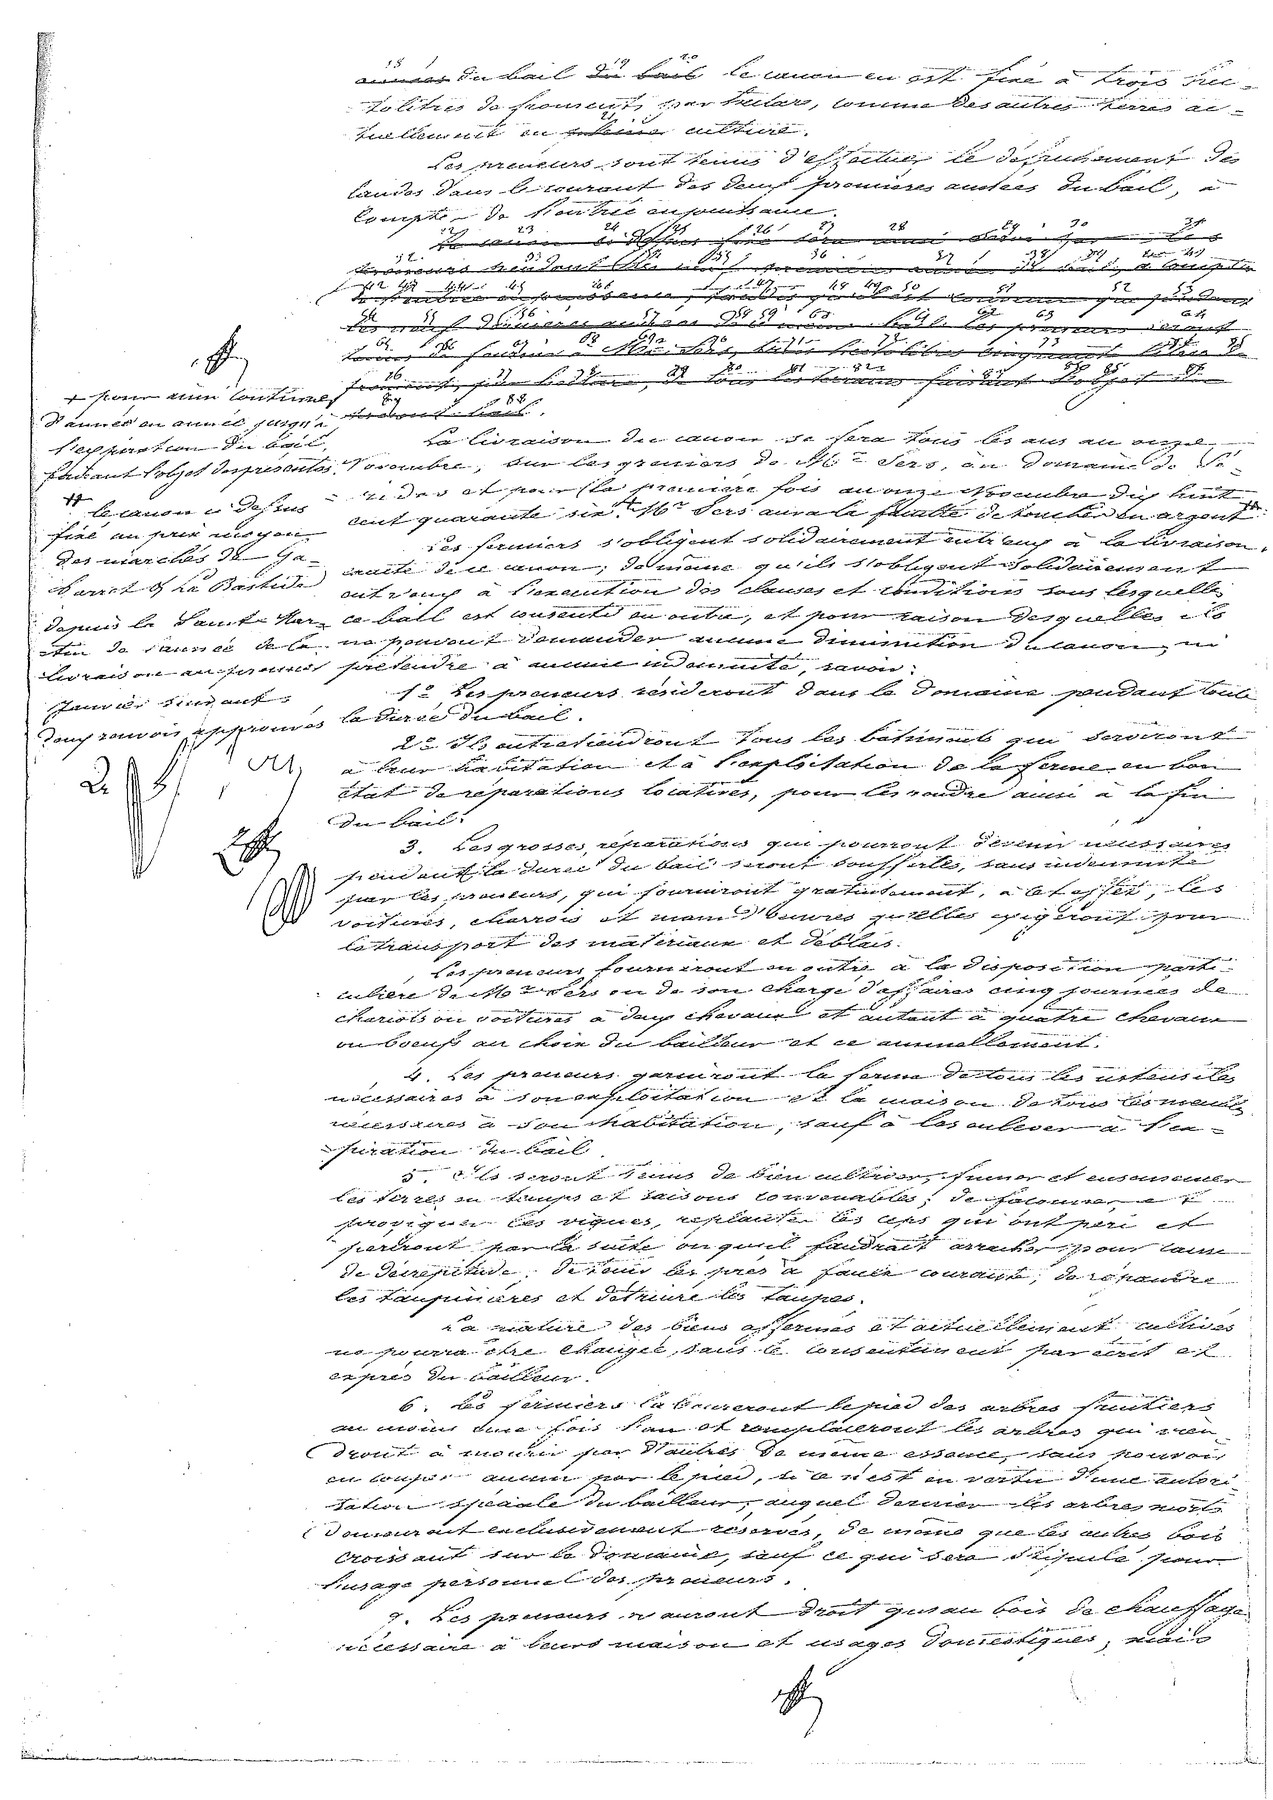 années du bail du bail le canon en est fixé à trois hec-
tolitres de froment, par hectare, comme des autres terres ac-
tuellement en pleine culture.
Les preneurs sont tenus d'effectuer le défrichement des
landes dans le courant des deux premières années du bail, à
compter de l'entrée en jouissance.
Le canon ci-dessus fixé sera ainsi servi par les
preneurs pendant les neuf premières années du bail, à compter
de l'entrée en jouissance, tandis qu'il est convenu que pendant
les neuf dernières années du même bail les preneurs seront
tenus de fournir à Mr Sers, trois hectolitres cinquante litres de
froment, par hectare, de tous les terrains faisant l'objet du
présent bail.
La livraison du canon se fera tous les ans au onze
Novembre, sur les greniers de Mr Sers, au domaine de Sé-
ridos et pour la première fois au onze Novembre dix huit
cent quarante six. Mr Sers aura la faculté de toucher en argent
Les fermiers s'obligent solidairement entr'eux à la livraison
exacte de ce canon; de même qu'ils s'obligent solidairement
entr'eux à l'exécution des clauses et conditions sous lesquelles
ce bail est consenti en outre, et pour raison desquelles ils
ne pourront demander aucune diminution du canon, ni
prétendre à aucune indemnité, savoir:
1º Les preneurs résideront dans le domaine pendant toute
la durée du bail.
2º Ils entretiendront tous les bâtiments qui serviront
à leur habitation et à l'exploitation de la ferme en bon
état de réparations locatives, pour les rendre ainsi à la fin
du bail.
3. Les grosses réparations qui pourront devenir nécessaires
pendant la durée du bail seront souffertes, sans indemnité
par les preneurs, qui fourniront gratuitement, à cet effet, les
voitures, charrois et main d'œuvres qu'elles exigeront pour
le transport des matériaux et déblais.
Les preneurs fourniront en outre à la disposition parti-
culière de Mr Sers ou de son chargé d'affaires cinq journées de
chariots ou voitures à deux chevaux et autant à quatre chevaux
ou bœufs au choix du bailleur et ce annuellement.
4. Les preneurs garniront la ferme de tous les ustensiles
nécessaires à son exploitation et la maison de tous les meubles
nécessaires à son habitation, sauf à les enlever à l'ex-
piration du bail
5. Ils seront tenus de bien cultiver, fumer et ensemencer
les terres en temps et saisons convenables; de façonner et
provigner les vignes, replanter les ceps qui ont péri et
perdront par la suite ou qu'il faudrait arracher pour cause
de décrépitude; de tenir les prés à faulx courante; de répandre
les taupinières et détruire les taupes.
La nature des biens affermés et actuellement cultivés
ne pourra être changée, sans le consentement par écrit et
exprès du bailleur.
6. Les fermiers laboureront le pied des arbres fruitiers
au moins une fois l'an et remplaceront les arbres qui vien-
dront à mourir par d'autres de même essence, sans pouvoir
en couper aucun par le pied, si ce n'est en vertu d'une autori-
sation spéciale du bailleur, auquel dernier les arbres morts
demeurent exclusivement réservés, de même que les autres bois
croissant sur le domaine, sauf ce qui sera stipulé pour
l'usage personnel des preneurs.
7. Les preneurs n'auront droit qu'au bois de chauffage
nécessaire à leurs maison et usages domestiques; mais
+ pour ainsi continuer
d'année en année jusqu'à
l'expiration du bail,
faisant l'objet des présentes.
++ le canon ci dessus
fixé au prix moyen
des marchés de Ga-
barret & La Bastide
depuis la Saint Mar-
tin de l'année de la
livraison au premier
Janvier suivant.
deux renvois approuvés